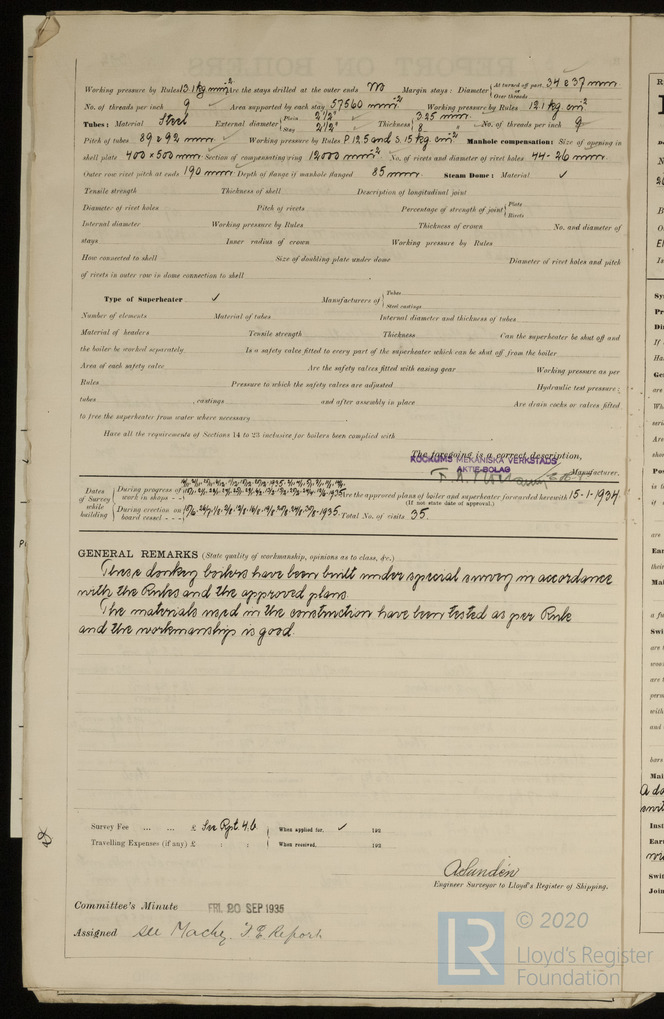 Working pressure by Rules 13.1 kg cm² Are the stays drilled at the outer ends No Margin stays: Diameter { At turned off part, or Over threads 34 & 37 mm
No. of threads per inch 9 Area supported by each stay 57560 mm² Working pressure by Rules 12.1 kg cm²
Tubes: Material Steel External diameter { Plain 2½" Stay 2½" Thickness { 3.25 mm 8 No. of threads per inch 9
Pitch of tubes 89 & 92 mm Working pressure by Rules P. 12.5 and S. 15 kg cm² Manhole compensation: Size of opening in
shell plate 400 × 500 mm Section of compensating ring 12000 mm² No. of rivets and diameter of rivet holes 44 - 26 mm
Outer row rivet pitch at ends 190 mm Depth of flange if manhole flanged 85 mm Steam Dome: Material ✓
Tensile strength Thickness of shell Description of longitudinal joint
Diameter of rivet holes Pitch of rivets Percentage of strength of joint { Plate Rivets
Internal diameter Working pressure by Rules Thickness of crown No. and diameter of
stays Inner radius of crown Working pressure by Rules
How connected to shell Size of doubling plate under dome Diameter of rivet holes and pitch
of rivets in outer row in dome connection to shell
Type of Superheater ✓ Manufacturers of { Tubes Steel castings
Number of elements Material of tubes Internal diameter and thickness of tubes
Material of headers Tensile strength Thickness Can the superheater be shut off and
the boiler be worked separately Is a safety valve fitted to every part of the superheater which can be shut off from the boiler
Area of each safety valve Are the safety valves fitted with easing gear Working pressure as per
Rules Pressure to which the safety valves are adjusted Hydraulic test pressure:
tubes , castings and after assembly in place Are drain cocks or valves fitted
to free the superheater from water where necessary
Have all the requirements of Sections 14 to 23 inclusive for boilers been complied with
The foregoing is a correct description,
KOCKUMS MEKANISKA VERKSTADS
AKTIE-BOLAG
Manufacturer.
Dates of Survey while building { During progress of work in shops - - Are the approved plans of boiler and superheater forwarded herewith 15-1-1934
(If not state date of approval.)
During erection on board vessel - - - Total No. of visits 35.
GENERAL REMARKS (State quality of workmanship, opinions as to class, &c.)
These donkey boilers have been built under special survey in accordance
with the Rules and the approved plans.
The materials used in the construction have been tested as per Rule
and the workmanship is good.
Survey Fee ... ... £ See Rpt. 4.b When applied for, ✓ 192
Travelling Expenses (if any) £ : : When received, 192
Engineer Surveyor to Lloyd's Register of Shipping.
Committee's Minute FRI. 20 SEP 1935
Assigned See Machy. F.E. Report
© 2020
LR Lloyd's Register
Foundation